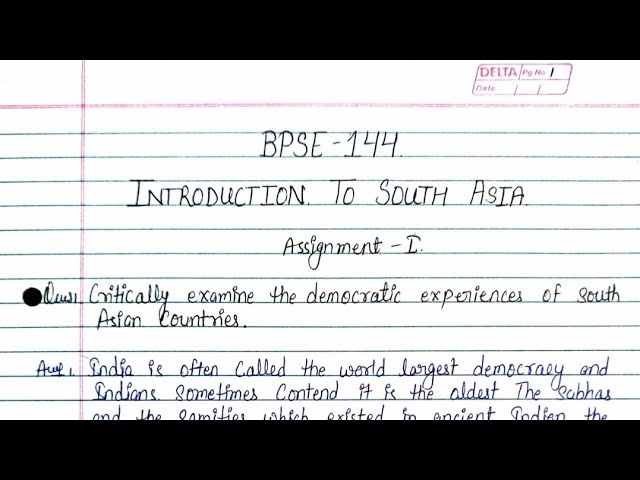 DELTA Pg No. 1
Date / /
BPSE-144.
INTRODUCTION. TO SOUTH ASIA.
Assignment - I.
Ques1. Critically examine the democratic experiences of South
Asian Countries.
Ans1. India is often called the world largest democracy and
Indians Sometimes Contend it is the oldest The Sabhas
and the Samities which existed in ancient Indian the